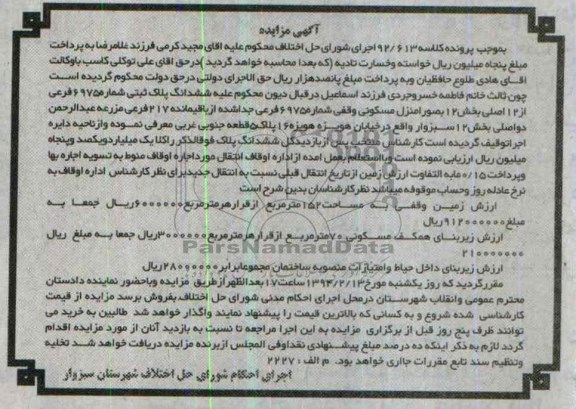 آگهی مزایده
بموجب پرونده کلاسه ۹۲/۶۱۳ اجرای شورای حل اختلاف محکوم علیه آقای مجید کرمی فرزند غلامرضا به پرداخت
مبلغ پنجاه میلیون ریال خواسته وخسارت تادیه (که بعدا محاسبه خواهد گردید) درحق آقای علی توکلی کاسب باوکالت
آقای هادی طلوع حافظیان وبه پرداخت مبلغ پانصدهزار ریال حق الاجرای دولتی درحق دولت محکوم گردیده است
چون ثالث خانم فاطمه خسروجردی فرزند اسماعیل درقبال دیون محکوم علیه ششدانگ پلاک ثبتی شماره ۶۹۷۵ فرعی
از ۱۲ اصلی بخش ۱۲ بصورامنزل مسکونی وقفی شماره ۶۹۷۵ فرعی جداشده از باقیمانده ۲۱۷ فرعی مزرعه عبدالرحمن
دواصلی بخش ۱۲ سبزوار واقع درخیابان هویزه هویزه ۱۶ پلاک ۵ قطعه جنوبی غربی معرفی نموده وازناحیه دایره
اجراتوقیف گردیده است کارشناس منتخب پس ازبازدیدکل ششدانگ پلاک فوق الذکر راکلا یک میلیاردویکصد وپنجاه
میلیون ریال ارزیابی نموده است وبااستعلام بعمل آمده ازاداره اوقاف انتقال مورداجاره اوقاف منوط به تسویه اجاره بها
وپرداخت ۰/۱۵ مابه التفاوت ارزش زمین از تاریخ انتقال قبلی نسبت به انتقال جدیدبرای نظر کارشناس اداره اوقاف به
نرخ عادله روز وحساب موقوفه میباشد نظرکارشناسان بدین شرح است
ارزش زمین وقفی به مساحت ۱۵۲ مترمربع ازقرارهرمترمربع ۶۰۰۰۰۰۰ ریال جمعا به
مبلغ ۹۱۲۰۰۰۰۰۰ ریال
ارزش زیربنای همکف مسکونی ۷۰ مترمربع ازقرارهرمترمربع ۳۰۰۰۰۰۰ ریال جمعا به مبلغ ریال
۲۱۰۰۰۰۰۰۰
ParsNamadData
ارزش زیربنای داخل حیاط وامتیازات منصوبه ساختمان مجموعا برابر ۲۸۰۰۰۰۰۰ ریال
مقررگردید که روز یکشنبه مورخ ۱۳۹۴/۲/۱۳ ساعت ۱۷ بعدالظهر از طریق مزایده وباحضور نماینده دادستان
محترم عمومی وانقلاب شهرستان درمحل اجرای احکام مدنی شورای حل اختلاف بفروش برسد مزایده از قیمت
کارشناسی شده شروع و به کسانی که بالاترین قیمت را پیشنهاد نمایند واگذار خواهد شد طالبین به خرید می
توانند ظرف پنج روز قبل از برگزاری مزایده به این اجرا مراجعه تا نسبت به بازدید آنان از مورد مزایده اقدام
گردد لازم به ذکر اینکه ده درصد مبلغ پیشنهادی نقداوفی المجلس ازبرنده مزایده دریافت خواهد شد تخلیه
وتنظیم سند تابع مقررات جاری خواهد بود. م الف: ۲۲۲۷
اجرای احکام شورای حل اختلاف شهرستان سبزوار